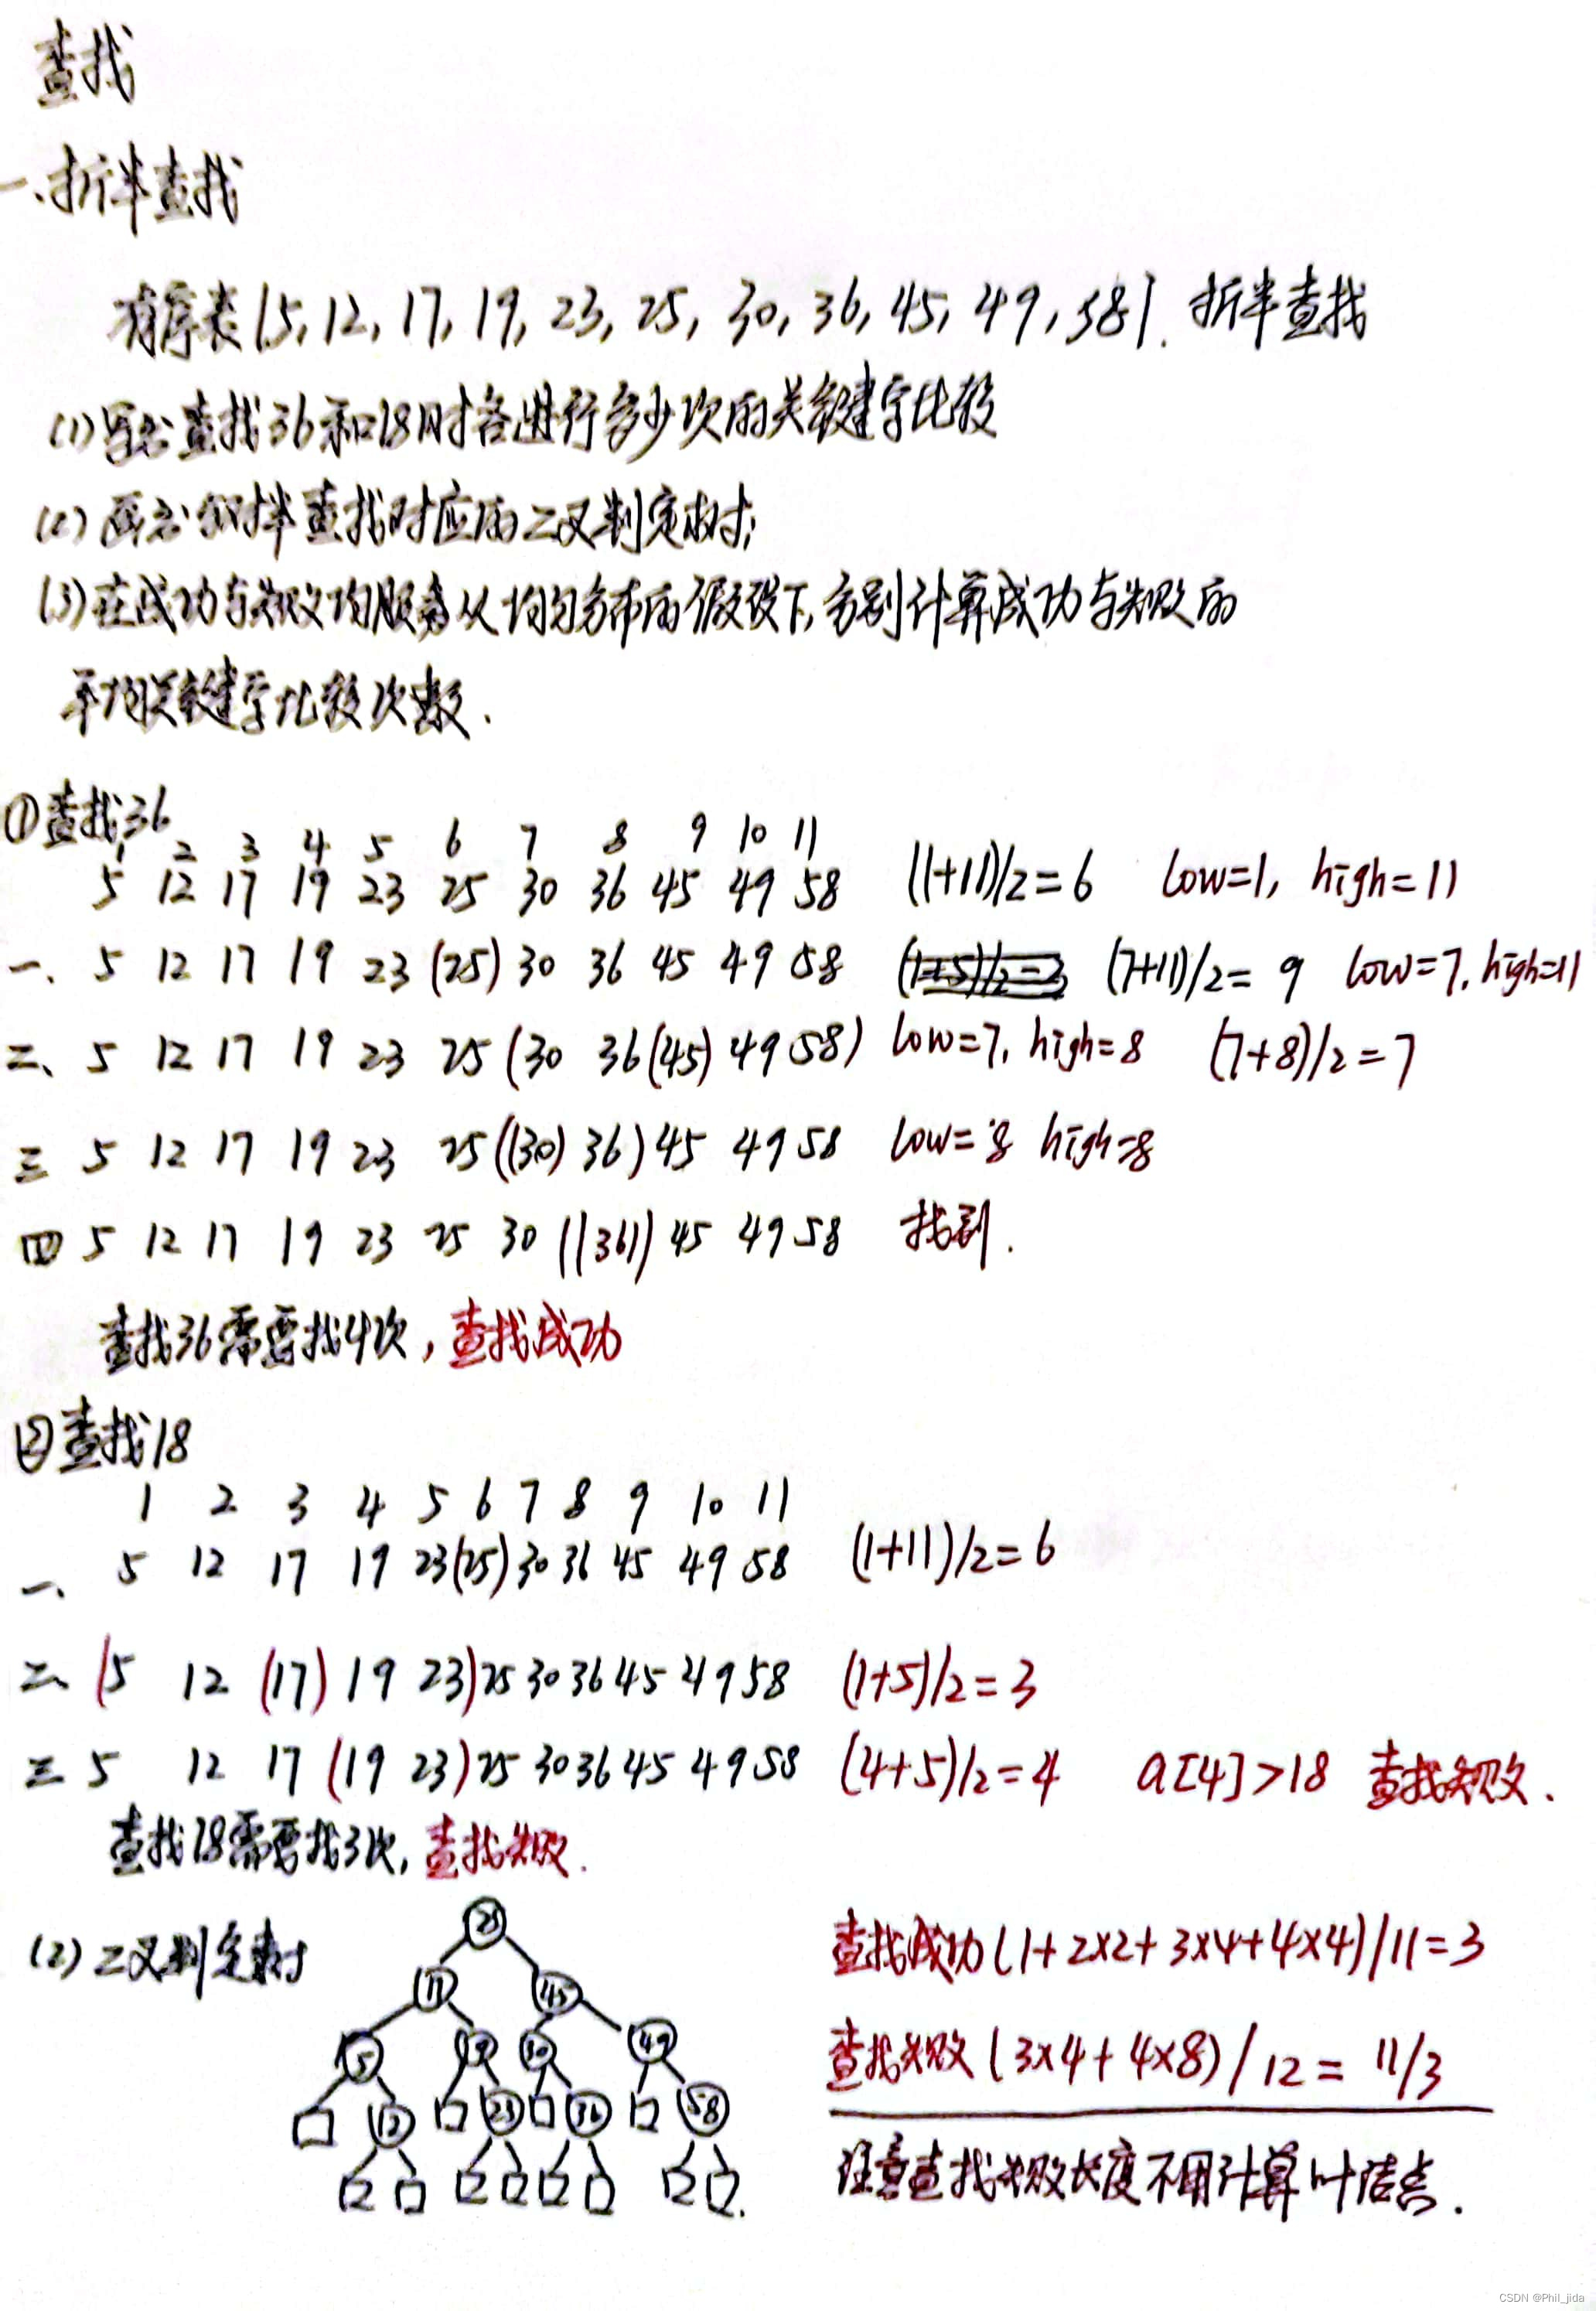 查找
一、折半查找
有序表{5, 12, 17, 19, 23, 25, 30, 36, 45, 49, 58}. 折半查找
(1)写出查找36和18时各进行多少次的关键字比较
(2)画出折半查找对应的二叉判定树;
(3)在成功与失败均服从均匀分布的假设下,分别计算成功与失败的
平均关键字比较次数.
①查找36
1 2 3 4 5 6 7 8 9 10 11
5 12 17 19 23 25 30 36 45 49 58 (1+11)/2=6 low=1, high=11
一、5 12 17 19 23 (25) 30 36 45 49 58 (7+11)/2=9 low=7, high=11
二、5 12 17 19 23 25 (30 36 (45) 49 58) low=7, high=8 (7+8)/2=7
三 5 12 17 19 23 25 ((30) 36) 45 49 58 low=8 high=8
四 5 12 17 19 23 25 30 ((36)) 45 49 58 找到.
查找36需要找4次,查找成功
②查找18
1 2 3 4 5 6 7 8 9 10 11
一、5 12 17 19 23 (25) 30 36 45 49 58 (1+11)/2=6
二、(5 12 (17) 19 23) 25 30 36 45 49 58 (1+5)/2=3
三 5 12 17 (19 23) 25 30 36 45 49 58 (4+5)/2=4 a[4]>18 查找失败.
查找18需要找3次,查找失败.
(2)二叉判定树
25
17 45
5 19 30 49
12 23 36 58
查找成功(1+2×2+3×4+4×4)/11=3
查找失败(3×4+4×8)/12=11/3
注意查找失败长度不用计算叶结点.
CSDN @Phil_jida